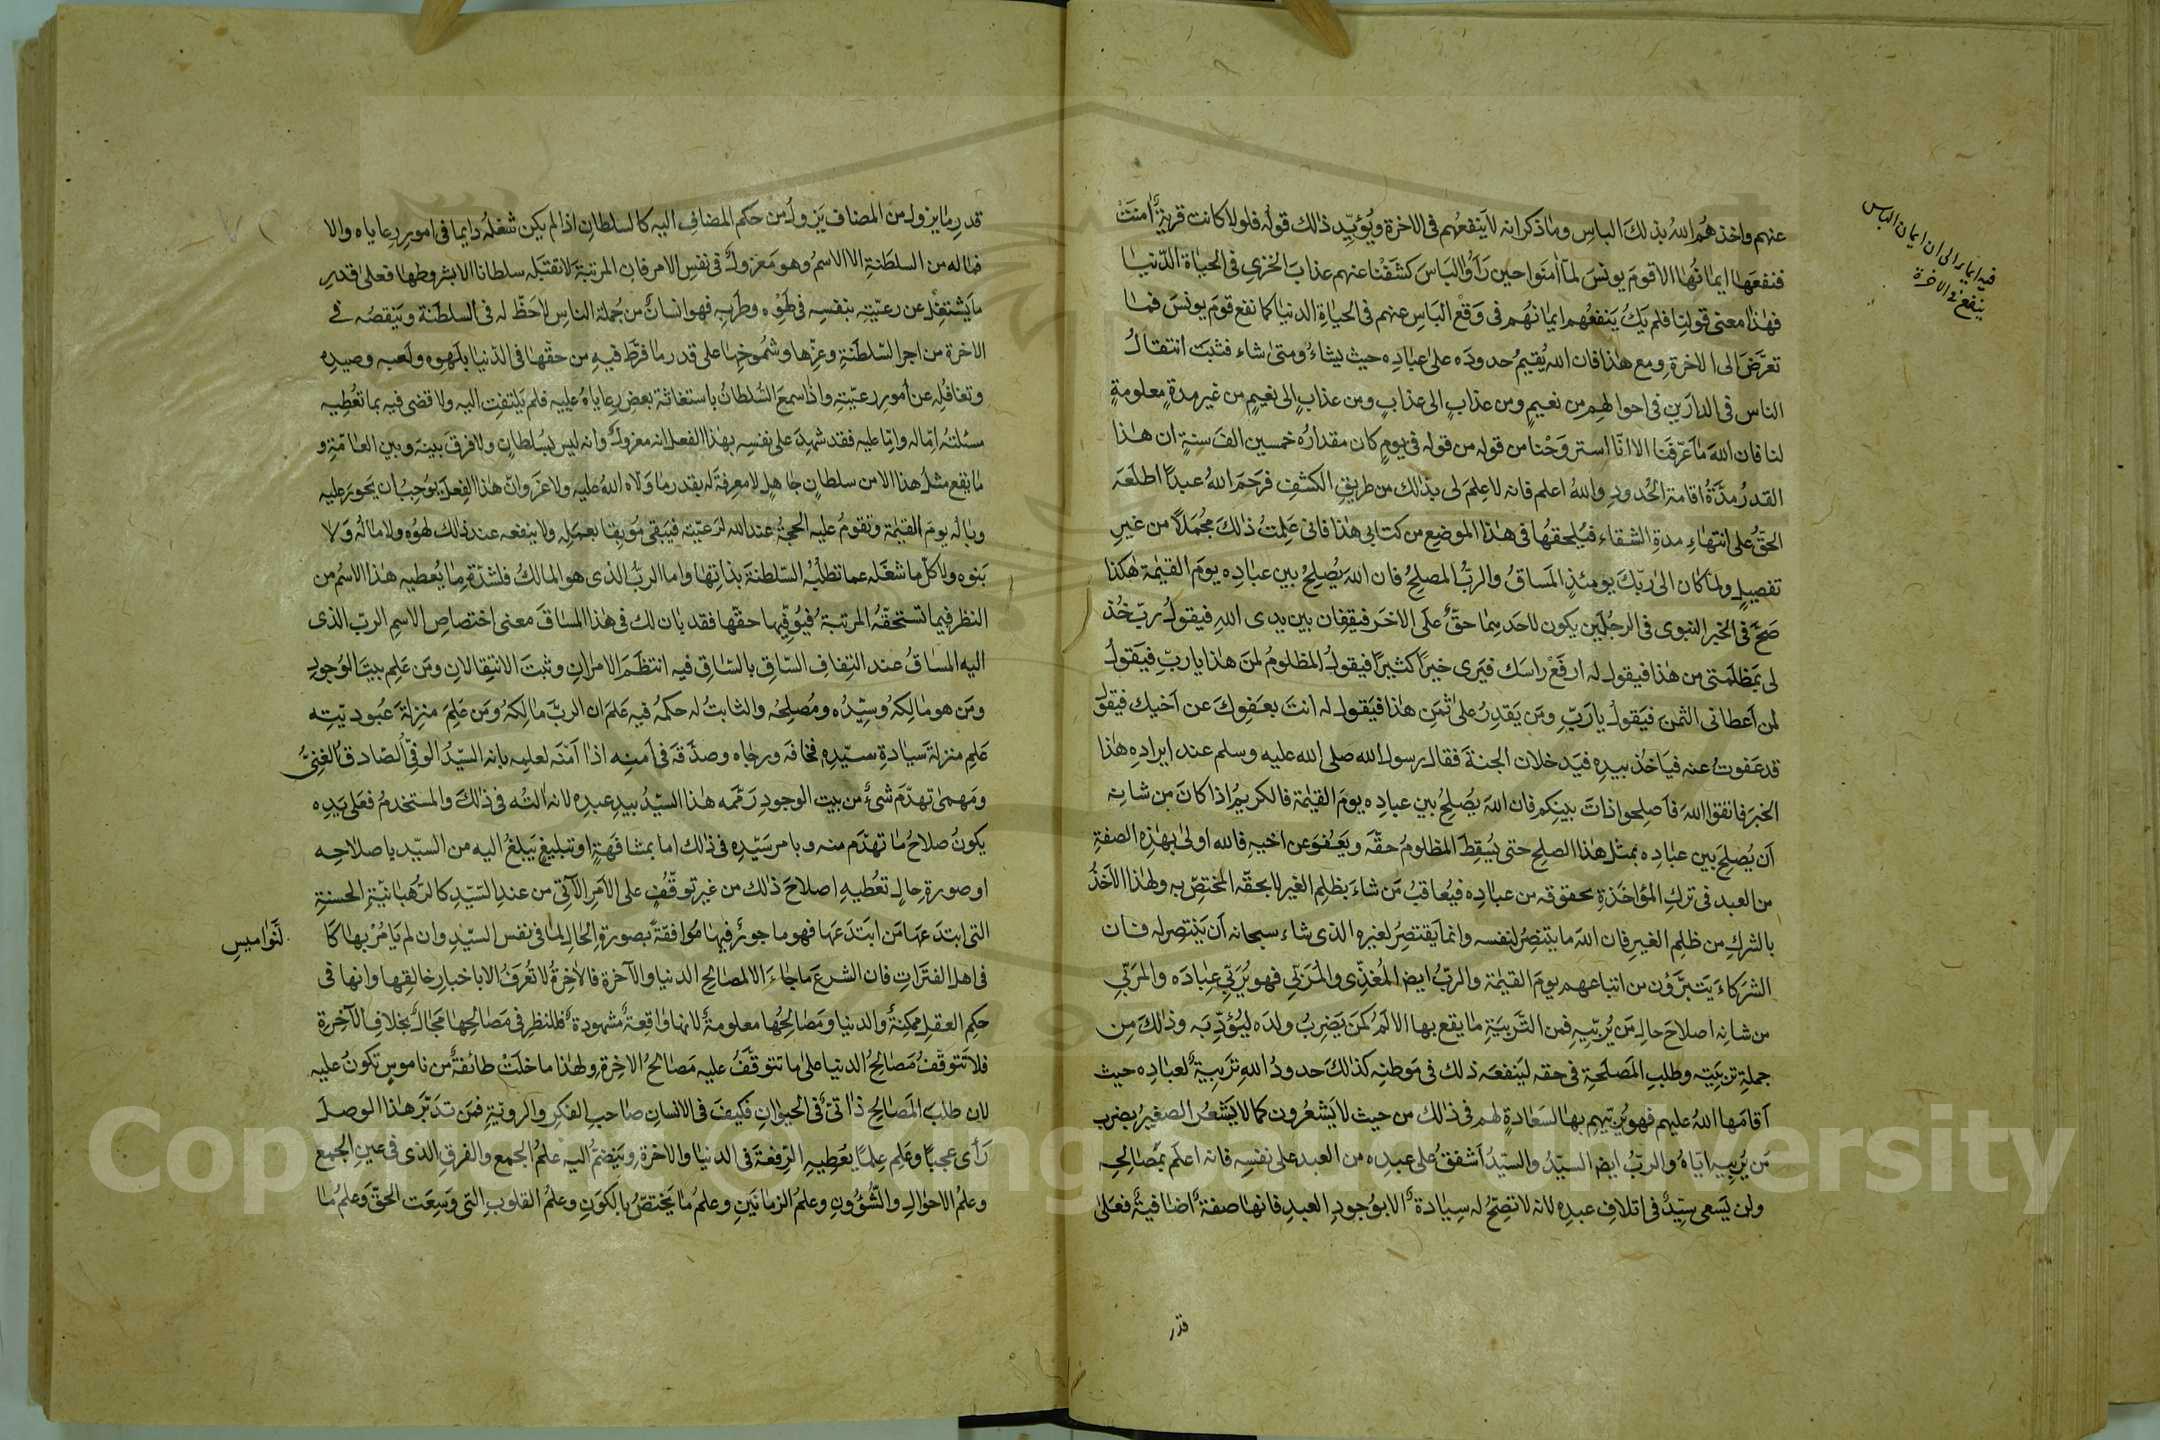 عنهم واخذهُم اللهُ بذلكَ الباسِ وماذكر انه لاَينفعُهم فى الاخرة ويُؤيِّد ذالك قولُه فلولا كانت قريةٌ امنَتْ
فنفعَهَا ايمانُهَا الاقومَ يونسَ لمآ امنَوا حين رَأَوُا البَاسَ كشَفْنا عنهم عذابَ الخزىِ فى الحيَاة الدّنيَا
فهٰذا معنى قولنِا فلم يَكُ يَنفعُهم ايمانهُم فى وَقْع البَاسِ عنهم فى الحيَاةِ الدنيَا كما نفع قومَ يونسَ فمَا
تعرَّضَ الى الاخرةِ ومع هٰذا فان اللهَ يُقيمُ حدودَه على عبَادِه حيث يشاءُ ومتىٰ شاء فثبتَ انتقالُ
الناسِ فى الدارَينِ فى احوالهِم مِن نعيمٍ ومن عذابٍ الى عذابٍ ومن عذابٍ الى نعيمٍ من غير مدةٍ معلومةٍ
لنا فان اللهَ مَا عَرّفنَا الا انّا استروَحْنا من قوله من قوله فى يومٍ كان مقدارُه خمسين الفَ سنةٍ ان هٰذا
القدرُ مدَّةُ اقامة الحُدودِ واللهُ اعلم فانه لا علِمَ لى بذٰلك من طريقِ الكشْفِ فرَحِمَ اللهُ عبداً اطلَعَهَ
الحقُّ على انتهَاءِ مدةِ الشقاء فيُلحقهُا فى هٰذا الموضعِ من كتابى هٰذا فانى عَلِمتُ ذٰلكَ مجُمَلاً من غيرِ
تفصيلٍ ولمَا كان الىٰ ربّكَ يومئذٍ المَساقُ والربُّ المصلحُ فان اللهَ يُصلِحُ بين عبَادِه يومَ القيٰمة هٰكذا
صَحَّ فى الخبرِ النبوى فى الرجُلَين يكون لاحَدِ مِمَا حقٌّ عَلَى الاخَر فيَقِفان بين يدى اللهِ فيقولُ ربّ خُذ
لى بمَظلَمتى من هٰذا فيقول له ارفَعْ راسَك فيَرى خيراً كثيرًا فيقولُ المظلومُ لمنَ هٰذا ياربّ فيَقولُ
لمن اَعطانى الثمنَ فيَقولُ يارَبّ ومَن يَقدِرُ علىٰ ثمَنِ هٰذا فيَقول له انتَ بعَفوِكَ عن اَخيك فيقولُ
قد عَفوتُ عنه فيَاخُذ بيدِه فيَدخلان الجنةَ فقال رسول الله صلى الله عليه وسلم عند ايرادِه هٰذا
الخبرَ فانقوا اللهَ فاَصلِحوا ذاتَ بينكِم فان اللهَ يُصلِحُ بين عبادِه يومَ القيٰمة فالكريمُ اذا كانَ من شانِه
اَن يُصلحَ بين عبَادِه بمثل هٰذا الصلحِ حتى يُسْقِطَ المظلومُ حقَّه ويَعفُوَ عن اخيهِ فالله اولىٰ بهٰذِه الصفةِ
من العبد فى تركِ المؤاخَذةِ بحقوقه من عبَادِه فيُعاقبُ مَن شاءَ بظلمِ الغير لابحقّه المختصّ به ولهٰذا الاَخذُ
بالشركِ من ظلمِ الغير فان اللهَ ما يَنتصِرُ لنفسه وانما يَنتصِرُ لغيره الذى شاء سبحانه اَن يَنْتصِر له فان
الشركاءَ يَتبرَّؤن من اتباعهم يومَ القيٰمة والربُّ ايضا المُغذّى والمُرَبّى فهو يُرَبّى عِبَادَه والمرَبّى
من شانِه اصلاحُ حالِ مَن يُربّيهِ فمن التَّربَيَةِ ما يقع بها الالَمُ كمَن يَضرِبُ ولدَه ليُؤَدّبَه وذٰلكَ مِن
جملةِ تربيَتِه وطلبِ المَصلَحةِ فى حقه لينفعَه ذلك فى مَوطنِه كذالكَ حدودُ اللهِ تَربيةٌ لعبَادِه حيث
اَقامَها اللهُ عليهم فهو يُربّيهم بها لسَعادةٍ لهم فى ذالك من حيث لايَشعُرون كما لايَشْعُر الصغيرُ بضربِ
مَن يُربيه ايّاهُ والربُّ ايضا السيّدُ والسيّدُ اَشفقُ على عبدِه من العبدِ على نفسِه فانه اعلَم بمصَالحِه
ولن يَسعى سيّدٌ فى اتلافِ عبدِه لانه لاتصِحُّ له سِيَادةٌ الا بوُجودِ العبدِ فانها صفةٌ اضَافيةٌ فعَلىٰ
قدر
فيه ايماء الى ان ايمان الباس
ينفع فى الاخرة
قدرِ ما يزول من المضاف يَزولُ من حكم المضافِ اليه كالسلطانِ اذا لم يكن شغلُه دايما فى امورِ رعاياه والا
فماله من السلطَنةِ الا الاسمُ وهو مَعزولٌ فى نفسِ الامر فان المرتبةَ لا تقبَله سلطانا الا بشروطها فعلى قدرِ
ما يَشتغِلُ عن رعيّتِه بنفسِه فى لهوِه وطرَبِه فهو انسانٌ من جُملة الناسِ لاحَظَّ له فى السلطَنة ويَنقصُه فى
الاخرة من اجرِ السّلطنَةِ وعزّها وشمُوخها على قدرِ ما فرّط فيهِ من حقّها فى الدّنيا بلَهوِه ولَعبه وصيدِه
وتغافُلِه عن اُمورِ رعيّتِه واذا سمعَ السُّلطانُ باستغاثة بعضِ رعاياهُ عليه فلم يَلتفت اليه ولا قضى فيه بما تعُطِيه
مسئلتُه امّاله وامّا عليه فقد شَهِدَ على نفسه بهٰذا الفعلِ انه معزولٌ وانه ليسَ بسُلطانٍ ولا فرقَ بينَه وبين العامّةِ و
ما يقع مثلُ هذا الا من سلطانٍ جاهلٍ لا معرفةَ له بقدرِ ما وَلّاه اللهُ عليه ولا عزَوَ انّ هٰذا الفِعلَ يوُجبُ ان يحورَ عليه
وبَالُه يومَ القيٰمة وتقومُ عليه الحجةُ عند الله لرَعيّتِه فيَبقى مُوبِقا بعملِه ولا ينفعه عند ذالك لهوُه ولا مالُه وَلا
بنوه ولا كلُّ ما شغَله عما تطلُبُه السّلطنةُ بذاتِها واما الربُّ الذى هو المالكُ فلشدّةِ ما يُعطيه هٰذا الاسمُ من
النظرِ فيما تَستحقّهُ المرتبةُ فيُوفّيها حقّها فقد بان لك فى هٰذا المسَاقَ معنى اختصاصِ الاسمِ الربّ الذى
اليه المَسَاقُ عند التِفاف السّاقِ بالسّاقِ فيه انتظَمَ الامرانِ وثبتَ الانتِقالانِ ومَن عَلِم بيتَ الوُجودِ
ومَن هو مالِكهُ وسيّدُه ومُصلِحُه والثابتُ له حكمُه فيه عَلمَ ان الربَّ مَالِكهُ ومَن عَلِمَ منزلةَ عبُوديّتِه
عَلِم منزلةَ سيَادةِ سيّدِه فخافَه ورجَاه وصدّقَه فى اَمنِه اذا اَمَّنَه لعلمِه بانه السيّدُ الوفىّ الصّادقُ الغنىُّ
ومَهمىٰ تهدّم شئٌ من بيت الوجودِ رَمَّمه هٰذا السيّدُ بيدِ عبدِه لانه التُه فى ذٰلكَ والمستخدمُ فعلى يَدِه
يكونُ صلاحُ ما تهدّم منه وبامرِ سَيّدِه فى ذٰلك اما بمشافهَةٍ او تبليغٍ يَبلغُ اليه من السيّد باصلاحِه
او صورةِ حالٍ تعُطيهِ اصلاحَ ذٰلك من غيرِ توقُّفٍ على الاَمرِ الآتى من عندِ السَيّدِ كالرّهبَانيّةِ الحسنةِ
التى ابتدعَها مَن ابتَدَعَها فهو ماجورٌ فيها مُوافقةً بصورةِ الحالِ لما فى نفس السيّدِ وان لم يَأمُرْ بها كا
فى اهل الفتَراتِ فان الشرعَ مَاجاءَ الا لمصَالحِ الدنيا والآخرة فالاٰخِرةُ لا تُعرَفُ الا باخبارِ خالقِها وانها فى
حكمِ العقلِ ممكِنةٌ والدنيا ومصَالِحُها معلومةٌ لانها واقِعةٌ مشهودةٌ فللنظرِ فى مصَالِحِها مَجَالٌ بخلافِ الآخِرةِ
فلا تتوقّفُ مَصَالحُ الدنيا على ما تتوقّفُ عليه مَصَالحُ الاخِرةِ ولهٰذا ما خلَتْ طائفةٌ من ناموسٍ تكونُ عليه
لان طلبَ المَصَالح ذاتىٌّ فى الحيوانِ فكيفَ فى الانسانِ صاحبِ الفكرِ والرويّةِ فمَن تدَبّرَ هٰذا الوصلَ
رَأى عجبًا وعَلم عِلمًا يُعطيهِ الرِّفعةَ فى الدنيا والاخرةِ ويَنضمُّ اليه علمُ الجمعِ والفرقِ الذى فى عينِ الجمعِ
وعلمُ الاحوالِ والشّؤونِ وعلمُ الزمانَينِ وعلمُ ما يَختصّ بالكَونِ وعلمُ القلوبِ التى وَسِعَت الحقَّ وعلمُ مَا
لَنَواميسِ
Copyright © King Saud University